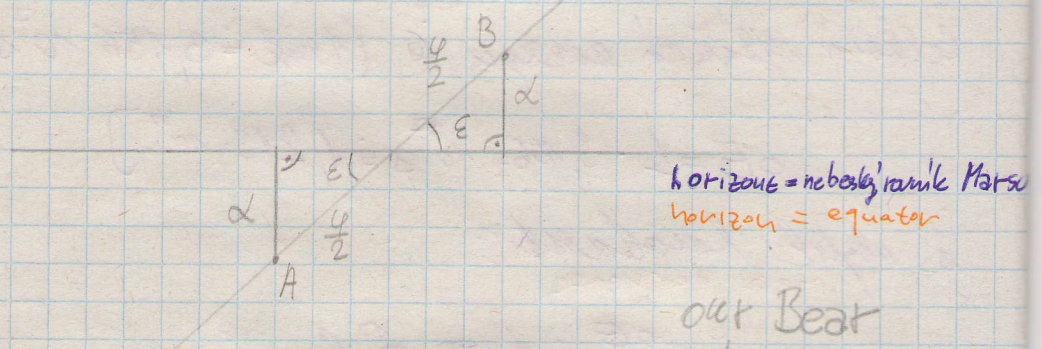 B
φ/2
α
ε
ε
α
φ/2
A
horizont = nebeský rovník Marsu
horizon = equator
our Bear